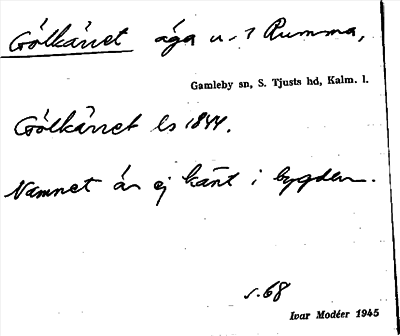 Gölkärret äga u. 1 Rumma,
Gamleby sn, S. Tjusts hd, Kalm. l.
Gölkärret ls 1844.
Namnet är ej känt i bygden.
s. 68
Ivar Modéer 1945